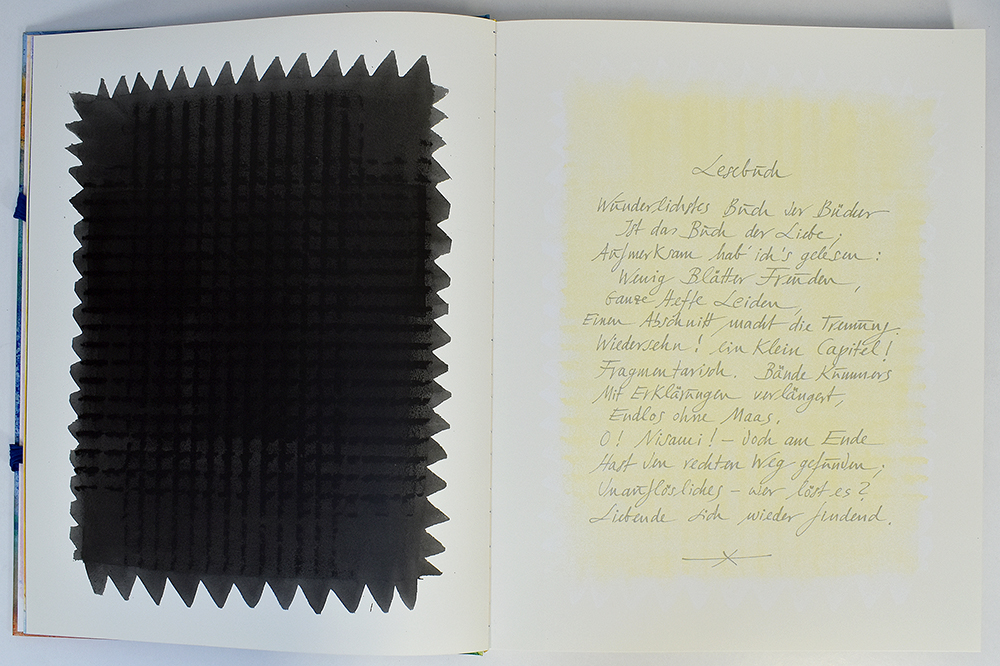 Lesebuch
Wunderlichstes Buch der Bücher
Ist das Buch der Liebe;
Aufmerksam hab' ich's gelesen:
Wenig Blätter Freuden,
Ganze Hefte Leiden,
Einen Abschnitt macht die Trennung.
Wiedersehn! ein klein Capitel!
Fragmentarisch. Bände Kummers
Mit Erklärungen verlängert,
Endlos ohne Maas.
O! Nisami! – doch am Ende
Hast den rechten Weg gefunden;
Unauflösliches – wer löst es?
Liebende sich wieder findend.